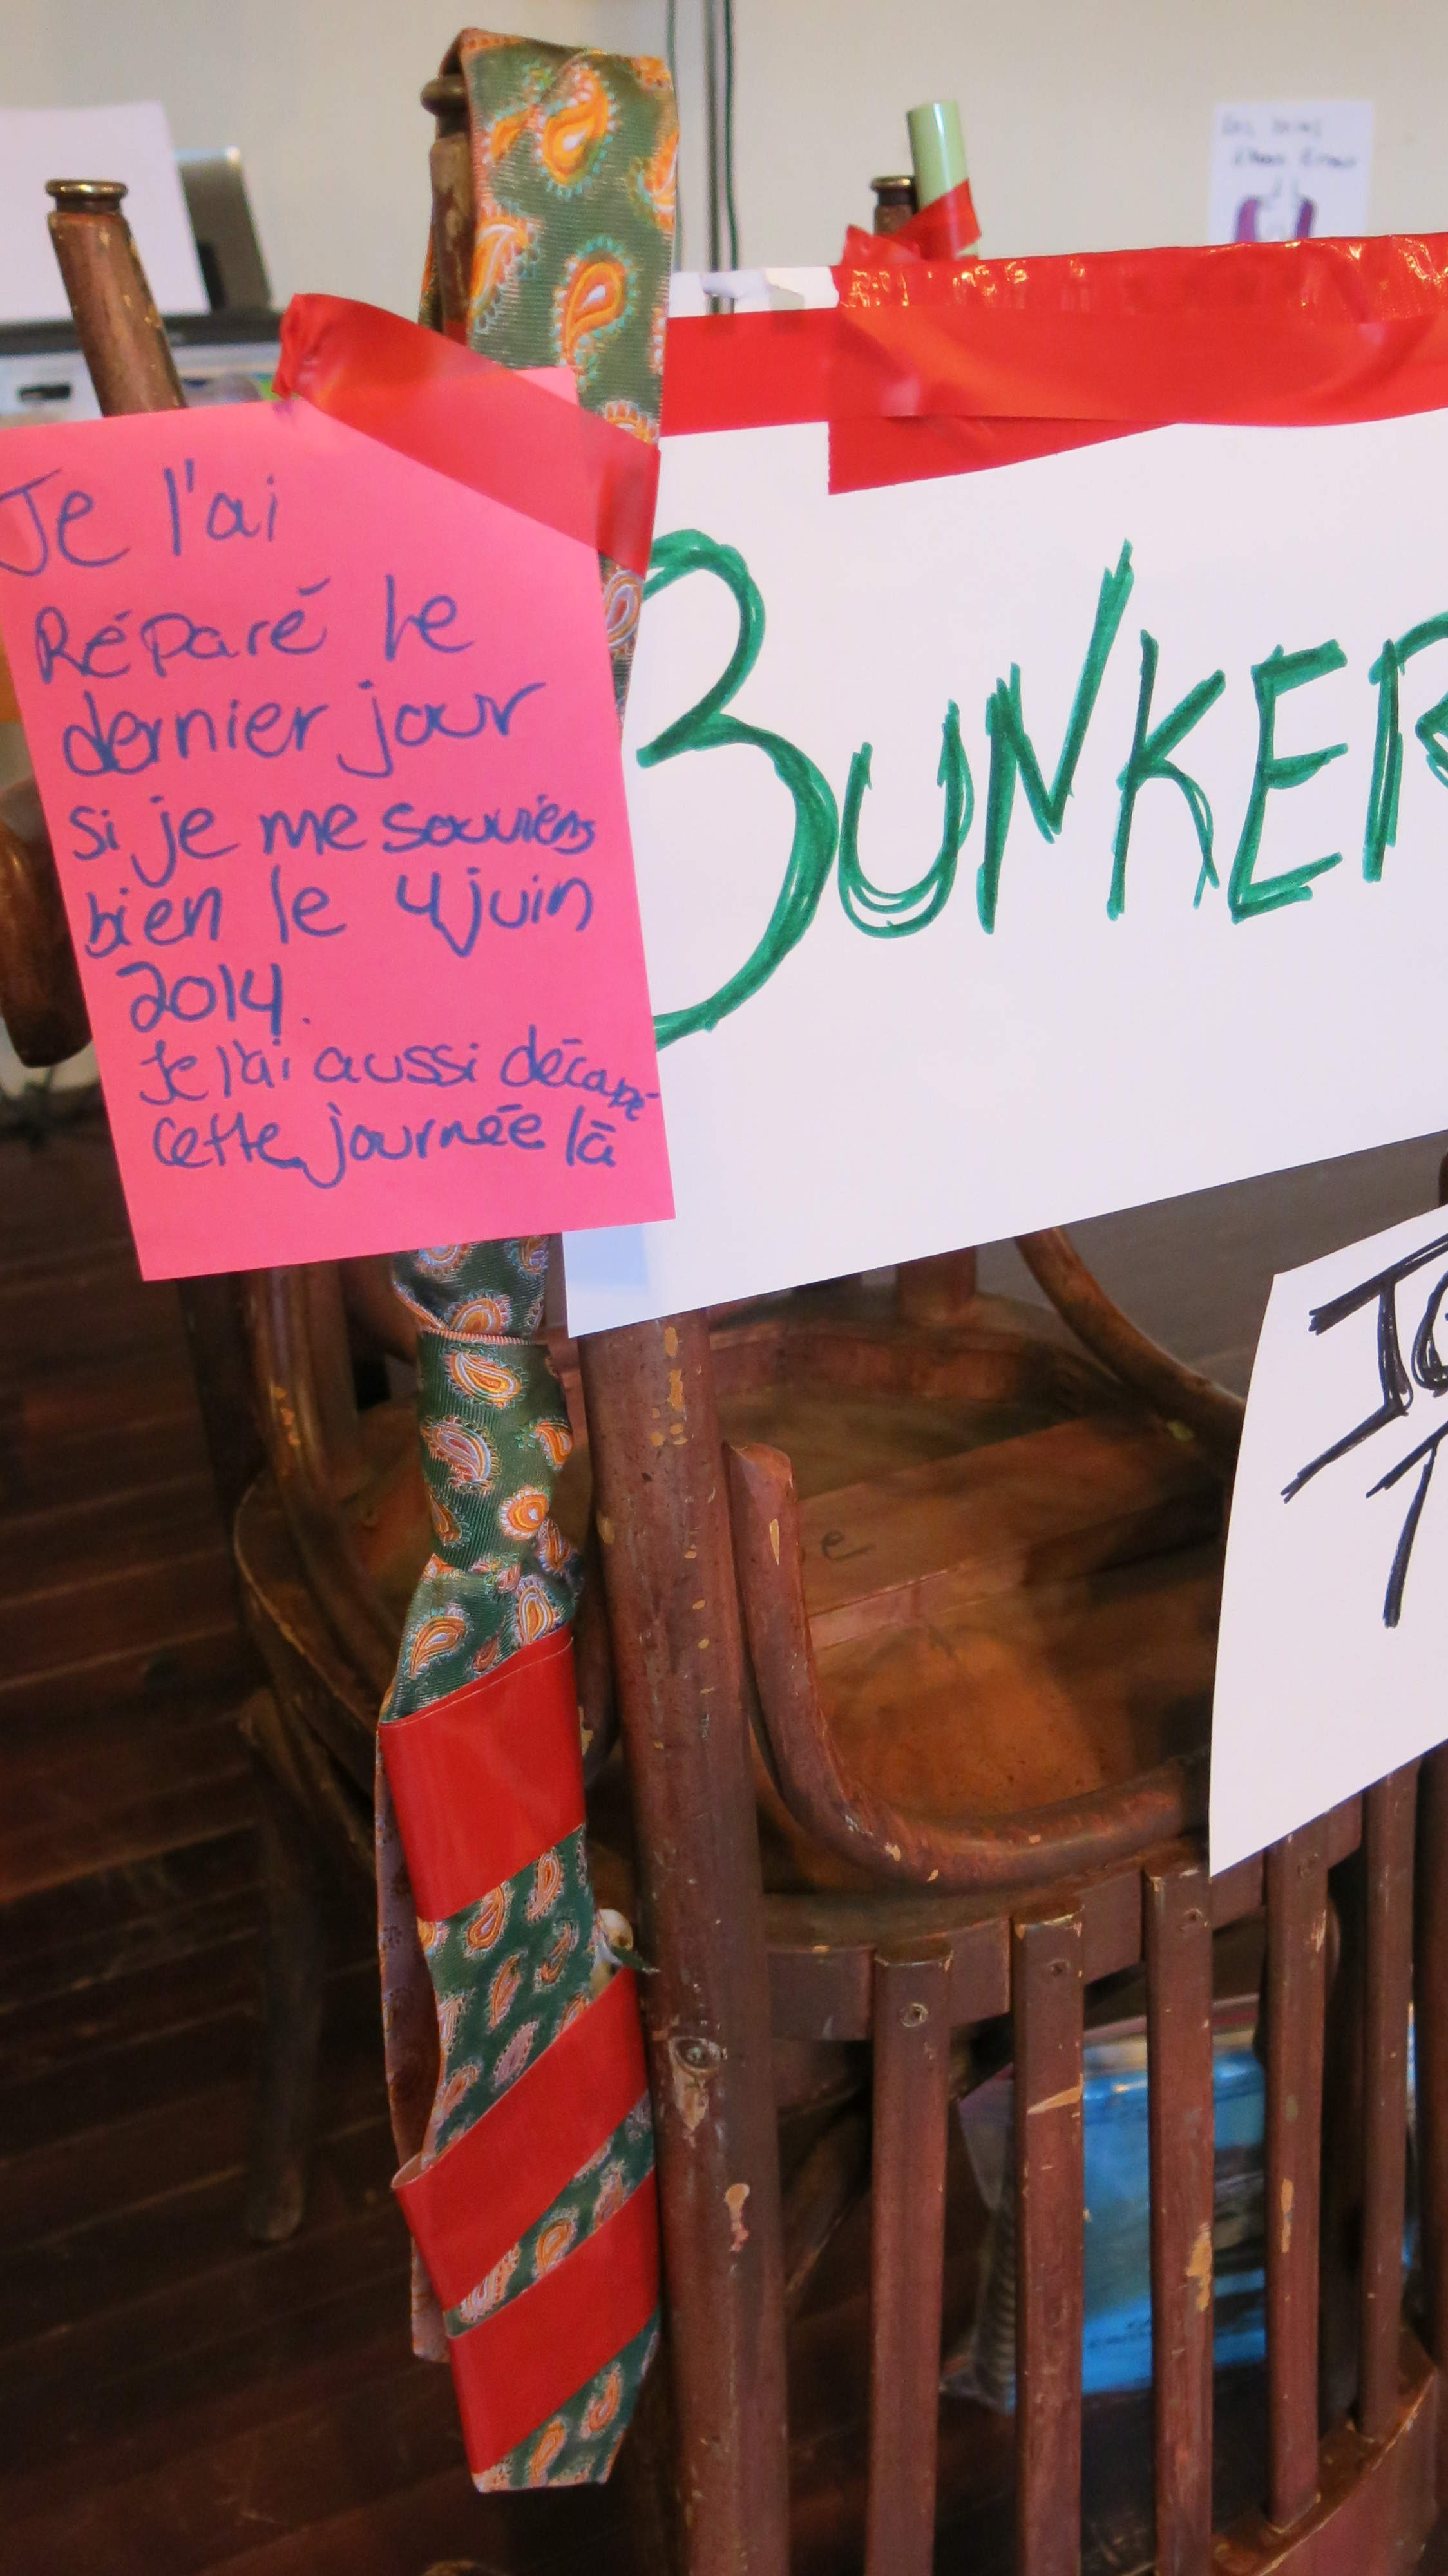 Je l'ai
Réparé le
dernier jour
si je me souviens
bien le 4 juin
2014.
Je l'ai aussi décapé
cette journée là
BUNKER